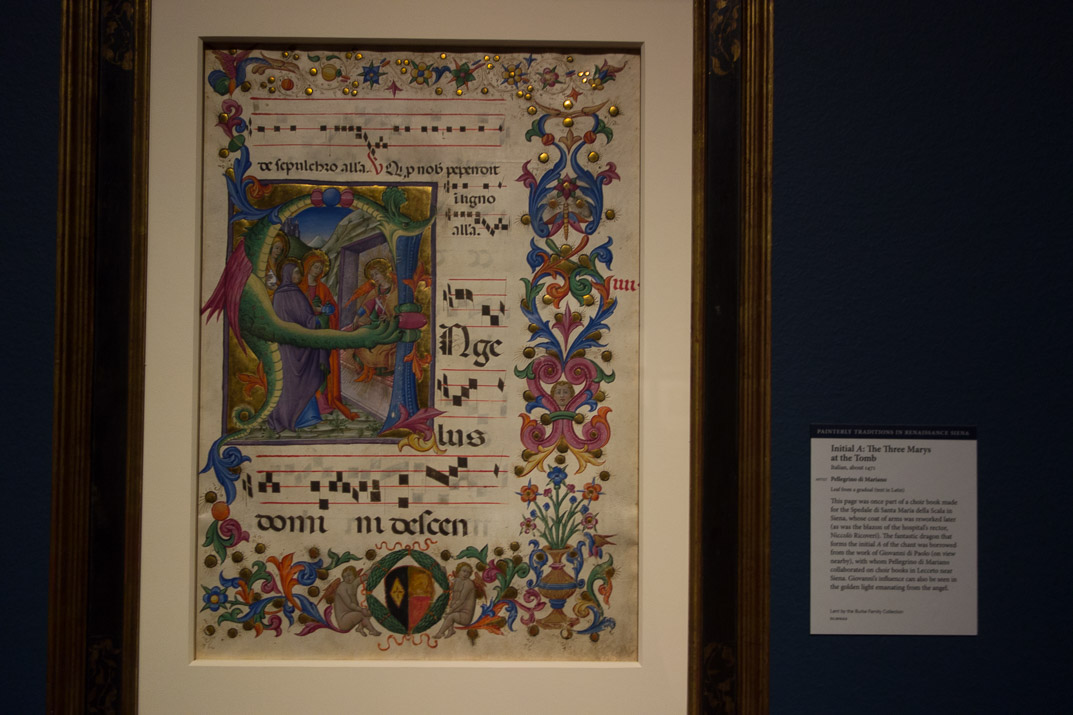 de sepulchro alla. V Q, p nob pependit
i ligno
alla.
IIII.
Nge
lus
domi ni descen
PAINTERLY TRADITIONS IN RENAISSANCE SIENA
Initial A: The Three Marys
at the Tomb
Italian, about 1471
ARTIST Pellegrino di Mariano
Leaf from a gradual (text in Latin)
This page was once part of a choir book made
for the Spedale di Santa Maria della Scala in
Siena, whose coat of arms was reworked later
(as was the blazon of the hospital's rector,
Niccolò Ricoveri). The fantastic dragon that
forms the initial A of the chant was borrowed
from the work of Giovanni di Paolo (on view
nearby), with whom Pellegrino di Mariano
collaborated on choir books in Lecceto near
Siena. Giovanni's influence can also be seen in
the golden light emanating from the angel.
Lent by the Burke Family Collection